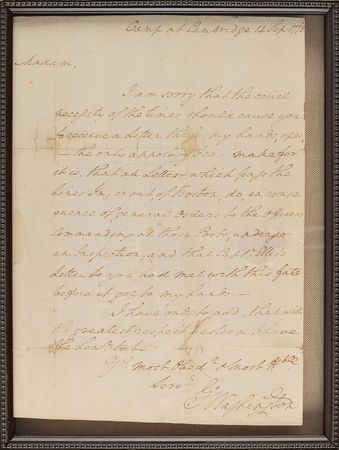 Camp at Cambridge 14 Sep 1775
Madam,
I am sorry that the cruel
necessity of the times should cause you
to receive a Letter thro' my hands, open
— the only apology I can make for
it is, that all Letters which pass the
Lines In, or out, of Boston, do, in conse
quence of general Orders to the Officers
commanding at those Posts, undergo
an Inspection, and that Capt. Ellis's
Letter to you had met with this fate
before it got to my hands. —
I have only to add, that with
the greatest respect & esteem, I have
the honr. to be
Yr. most Obedt. & most Hble
Servt.
G Washington